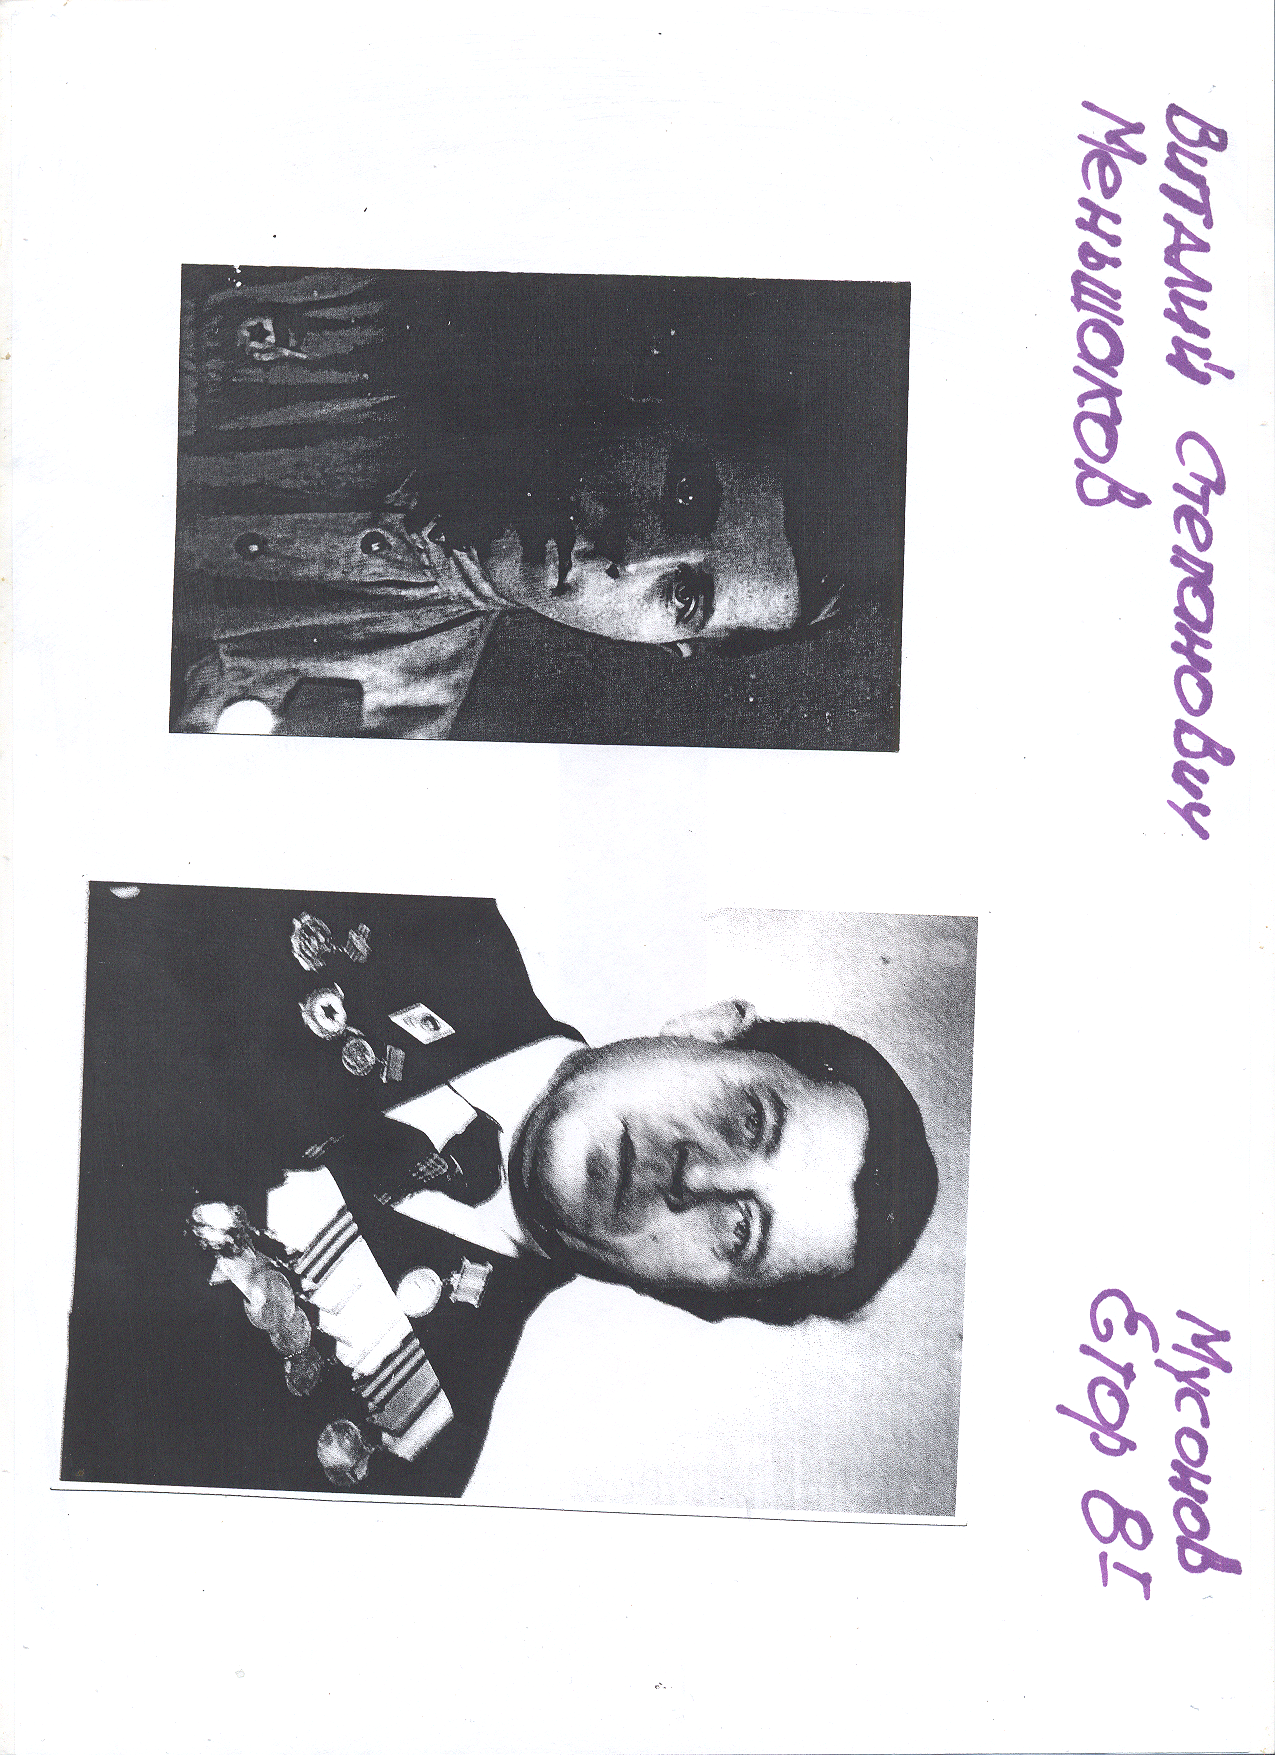 Виталий Степанович
Меньшаков
Мусонов
Егор 8-Г